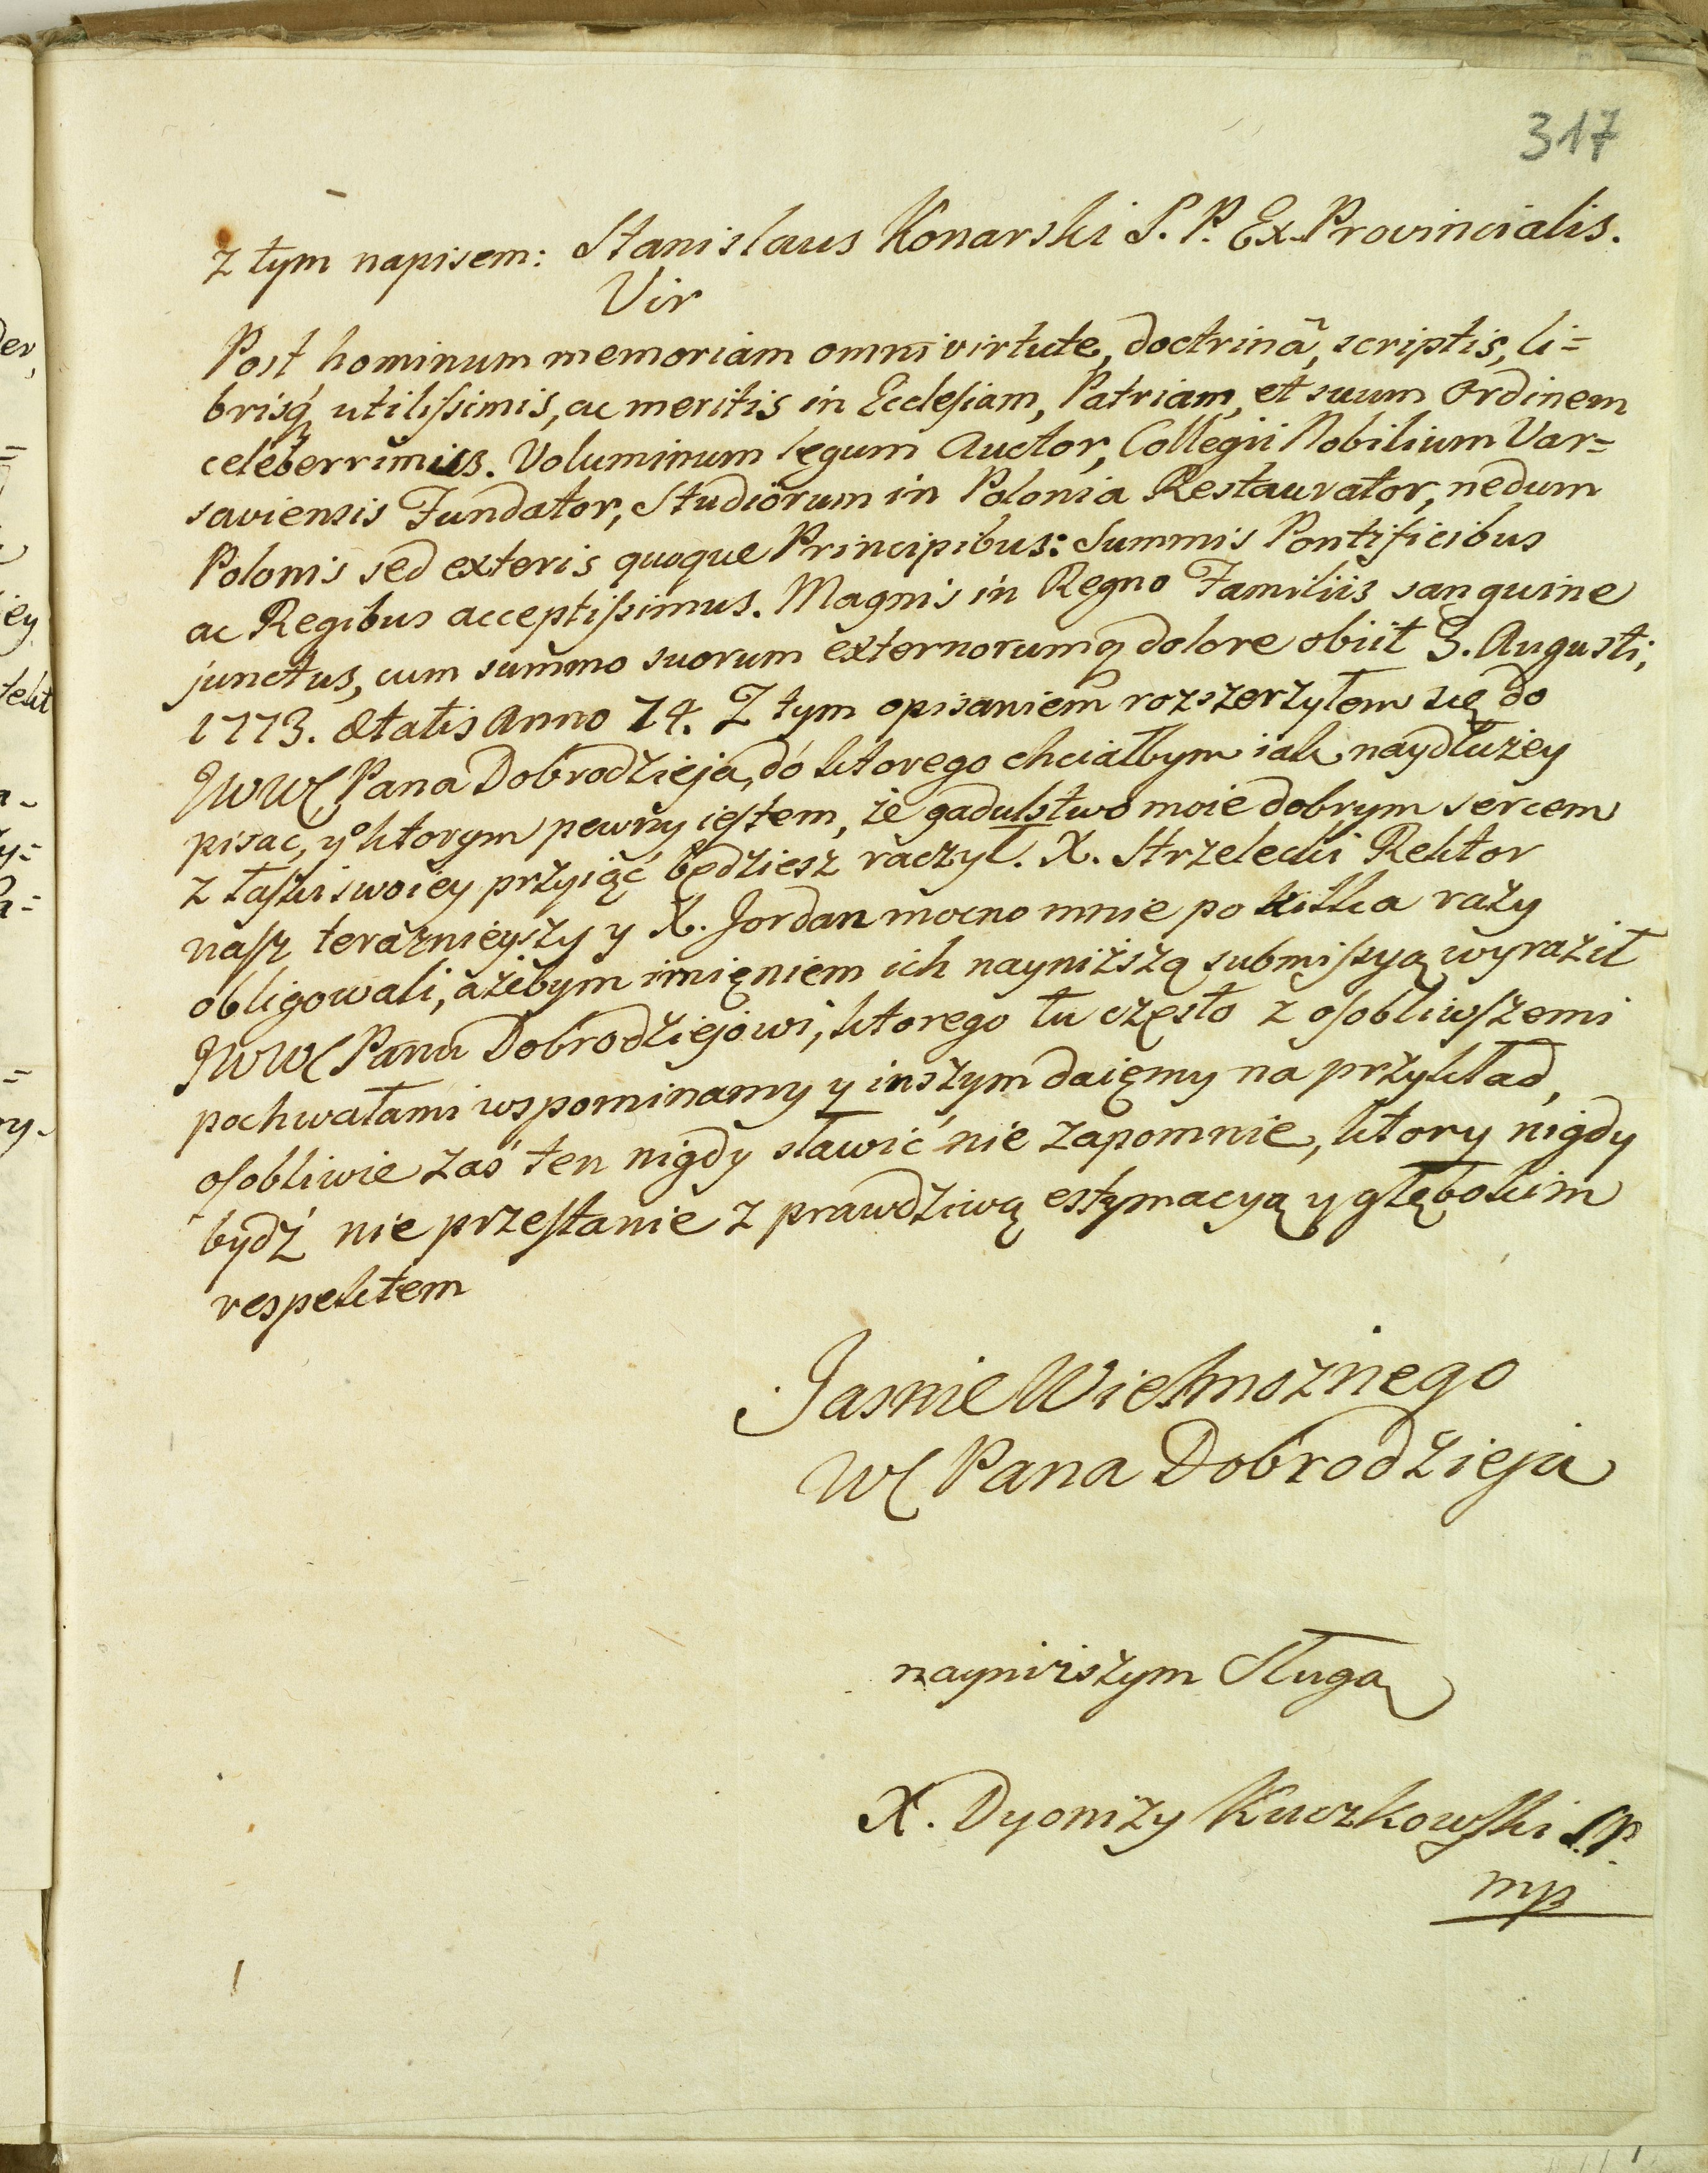 317
z tym napisem: Stanislaus Konarski S. P. Ex-Provincialis.
Vir
Post hominum memoriam omni virtute, doctrinâ, scriptis, li=
brisq́ utilissimis, ac meritis in Ecclesiam, Patriam, et suum Ordinem
celeberrimus. Voluminum legum Auctor, Collegii Nobilium Var=
saviensis Fundator, Studiorum in Polonia Restaurator, nedum
Polonis sed exteris quoque Principibus: Summis Pontificibus
ac Regibus acceptissimus. Magnis in Regno Familiis sanguine
junctus, cum summo suorum externorumq dolore obiit 3. Augusti,
1773. Ætatis Anno 74. Z tym opisaniem rozszerzyłem się do
JWW Pana Dobrodzieja, do ktorego chciałbym iak naydłużey
pisać, y o ktorym pewny iestem, że gadulstwo moie dobrym sercem
z łaski swoiey przyiąć będziesz raczył. X. Strzelecki Rektor
nasz teraznieyszy y X. Jordan mocno mnie po kilka razy
obligowali, ażebym imięniem ich nayniższą submissyą wyraził
JWW Panu Dobrodziejowi, ktorego tu często z osobliwszemi
pochwałami wspominamy y inszym daięmy na przykład,
osobliwie zaś ten nigdy sławić nie zapomnie, ktory nigdy
bydź nie przestanie z prawdziwą estymacyą y głębokim
respektem
Jasnie Wielmożnego
W Pana Dobrodzieja
nayniższym Sługą
X. Dyonizy Kuczkowski S.P.
mp